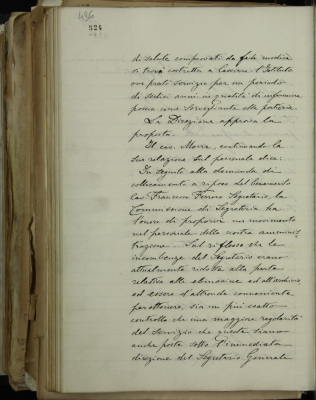 496
524
di salute comprovati da fede medica
si trova costretta a lasciare l'Istituto
ove prestò servizio per un periodo
di sedici anni in qualità di infermiera
poscia come sorvegliante alla porteria.
La Direzione approva la
proposta.
Il cav. Morra, continuando la
sua relazione sul personale dice:
In seguito alla domanda di
collocamento a riposo del
Cav. Francesco Ferrero Segretario, la
Commissione di Segreteria ha
l'onore di proporre un movimento
nel personale della nostra amminis-
trazione. Sul riflesso che le
incombenze del Segretario erano
attualmente ridotte alla parte
relativa alle elemosine ed all'archivio
ed essere d'altronde conveniente
per ottenere, sia un più esatto
controllo che una maggiore regolarità
del servizio che queste siano
anche poste sotto l'immediata
direzione del Segretario Generale